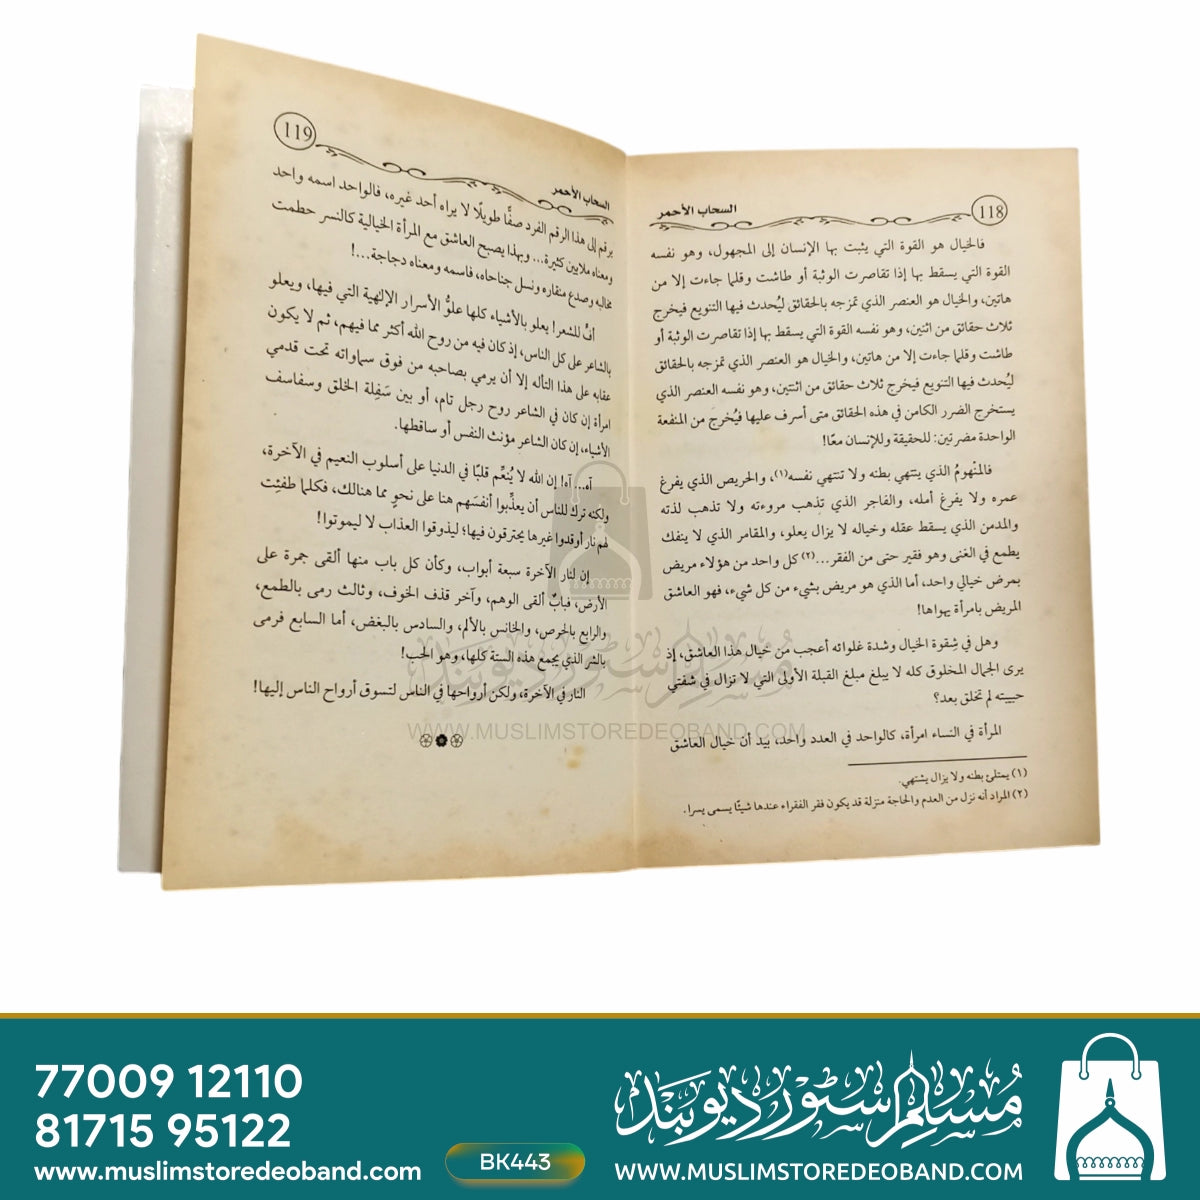 118
السحاب الأحمر
فالخيال هو القوة التي يثبت بها الإنسان إلى المجهول، وهو نفسه
القوة التي يسقط بها إذا تقاصرت الوثبة أو طاشت وقلما جاءت إلا من
هاتين، والخيال هو العنصر الذي تمزجه بالحقائق ليُحدث فيها التنويع فيخرج
ثلاث حقائق من اثنين، وهو نفسه القوة التي يسقط بها إذا تقاصرت الوثبة أو
طاشت وقلما جاءت إلا من هاتين، والخيال هو العنصر الذي تمزجه بالحقائق
ليُحدث فيها التنويع فيخرج ثلاث حقائق من اثنتين، وهو نفسه العنصر الذي
يستخرج الضرر الكامن في هذه الحقائق متى أسرف عليها فيُخرجَ من المنفعة
الواحدة مضرتين: للحقيقة وللإنسان معًا!
فالمنْهومُ الذي ينتهي بطنه ولا تنتهي نفسه(١)، والحريص الذي يفرغ
عمره ولا يفرغ أمله، والفاجر الذي تذهب مروءته ولا تذهب لذته
والمدمن الذي يسقط عقله وخياله لا يزال يعلو، والمقامر الذي لا ينفك
يطمع في الغنى وهو فقير حتى من الفقر...(٢) كل واحد من هؤلاء مريض
بمرض خيالي واحد، أما الذي هو مريض بشيء من كل شيء، فهو العاشق
المريض بامرأة يهواها!
وهل في شِقوة الخيال وشدة غلوائه أعجب من خيال هذا العاشق، إذ
يرى الجمال المخلوق كله لا يبلغ مبلغ القبلة الأولى التي لا تزال في شفتي
حبيبته لم تخلق بعد؟
المرأة في النساء امرأة، كالواحد في العدد واحد، بيد أن خيال العاشق
(١) يمتلئ بطنه ولا يزال يشتهي.
(٢) المراد أنه نزل من العدم والحاجة منزلة قد يكون فقر الفقراء عندها شيئًا يسمى يسرا.
119
السحاب الأحمر
يرقم إلى هذا الرقم الفرد صفًّا طويلًا لا يراه أحد غيره، فالواحد اسمه واحد
ومعناه ملايين كثيرة... وبهذا يصبح العاشق مع المرأة الخيالية كالنسر حطمت
مخالبه وصدع منقاره ونسل جناحاه، فاسمه ومعناه دجاجة...!
أفٌ للشعر! يعلو بالأشياء كلها علوُّ الأسرار الإلهية التي فيها، ويعلو
بالشاعر على كل الناس، إذ كان فيه من روح الله أكثر مما فيهم، ثم لا يكون
عقابه على هذا التأله إلا أن يرمي بصاحبه من فوق سماواته تحت قدمي
امرأة إن كان في الشاعر روح رجل تام، أو بين سَفِلة الخلق وسفاسف
الأشياء، إن كان الشاعر مؤنث النفس أو ساقطها.
آه... آه! إن الله لا يُنعِّم قلبًا في الدنيا على أسلوب النعيم في الآخرة،
ولكنه ترك للناس أن يعذِّبوا أنفسَهم هنا على نحوٍ مما هنالك، فكلما طفئِت
لهم نار أوقدوا غيرها يحترقون فيها؛ ليذوقوا العذاب لا ليموتوا!
إن لنار الآخرة سبعة أبواب، وكأن كل باب منها ألقى جمرة على
الأرض، فبابٌ ألقى الوهم، وآخر قذف الخوف، وثالث رمى بالطمع،
والرابع بالحرص، والخامس بالألم، والسادس بالبغض، أما السابع فرمى
بالشر الذي يجمع هذه الستة كلها، وهو الحب!
النار في الآخرة، ولكن أرواحها في الناس لتسوق أرواح الناس إليها!
مسلم سٹور دیوبند
WWW.MUSLIMSTOREDEOBAND.COM
77009 12110
81715 95122
www.muslimstoredeoband.com
BK443
مسلم سٹور دیوبند
WWW.MUSLIMSTOREDEOBAND.COM